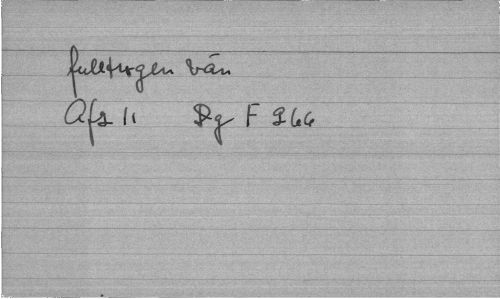 fulltrogen vän
Afz 11 Dg F 266